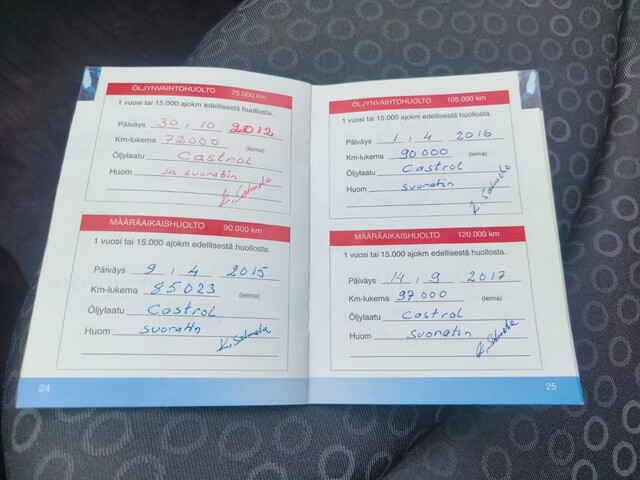 ÖLJYNVAIHTOHUOLTO 75.000 km
1 vuosi tai 15.000 ajokm edellisestä huollosta.
Päiväys 30 , 10 2012
Km-lukema 72000 (leima)
Öljylaatu Castrol
Huom ja suoratin
K. Salmela
MÄÄRÄAIKAISHUOLTO 90.000 km
1 vuosi tai 15.000 ajokm edellisestä huollosta.
Päiväys 9 , 4 2015
Km-lukema 85023 (leima)
Öljylaatu Castrol
Huom suoratin
K. Salmela
24
ÖLJYNVAIHTOHUOLTO 105.000 km
1 vuosi tai 15.000 ajokm edellisestä huollosta.
Päiväys 1 , 4 2016
Km-lukema 90000 (leima)
Öljylaatu Castrol
Huom suoratin
K. Salmela
MÄÄRÄAIKAISHUOLTO 120.000 km
1 vuosi tai 15.000 ajokm edellisestä huollosta.
Päiväys 14 , 9 2017
Km-lukema 97000 (leima)
Öljylaatu Castrol
Huom suoratin
K. Salmela
25